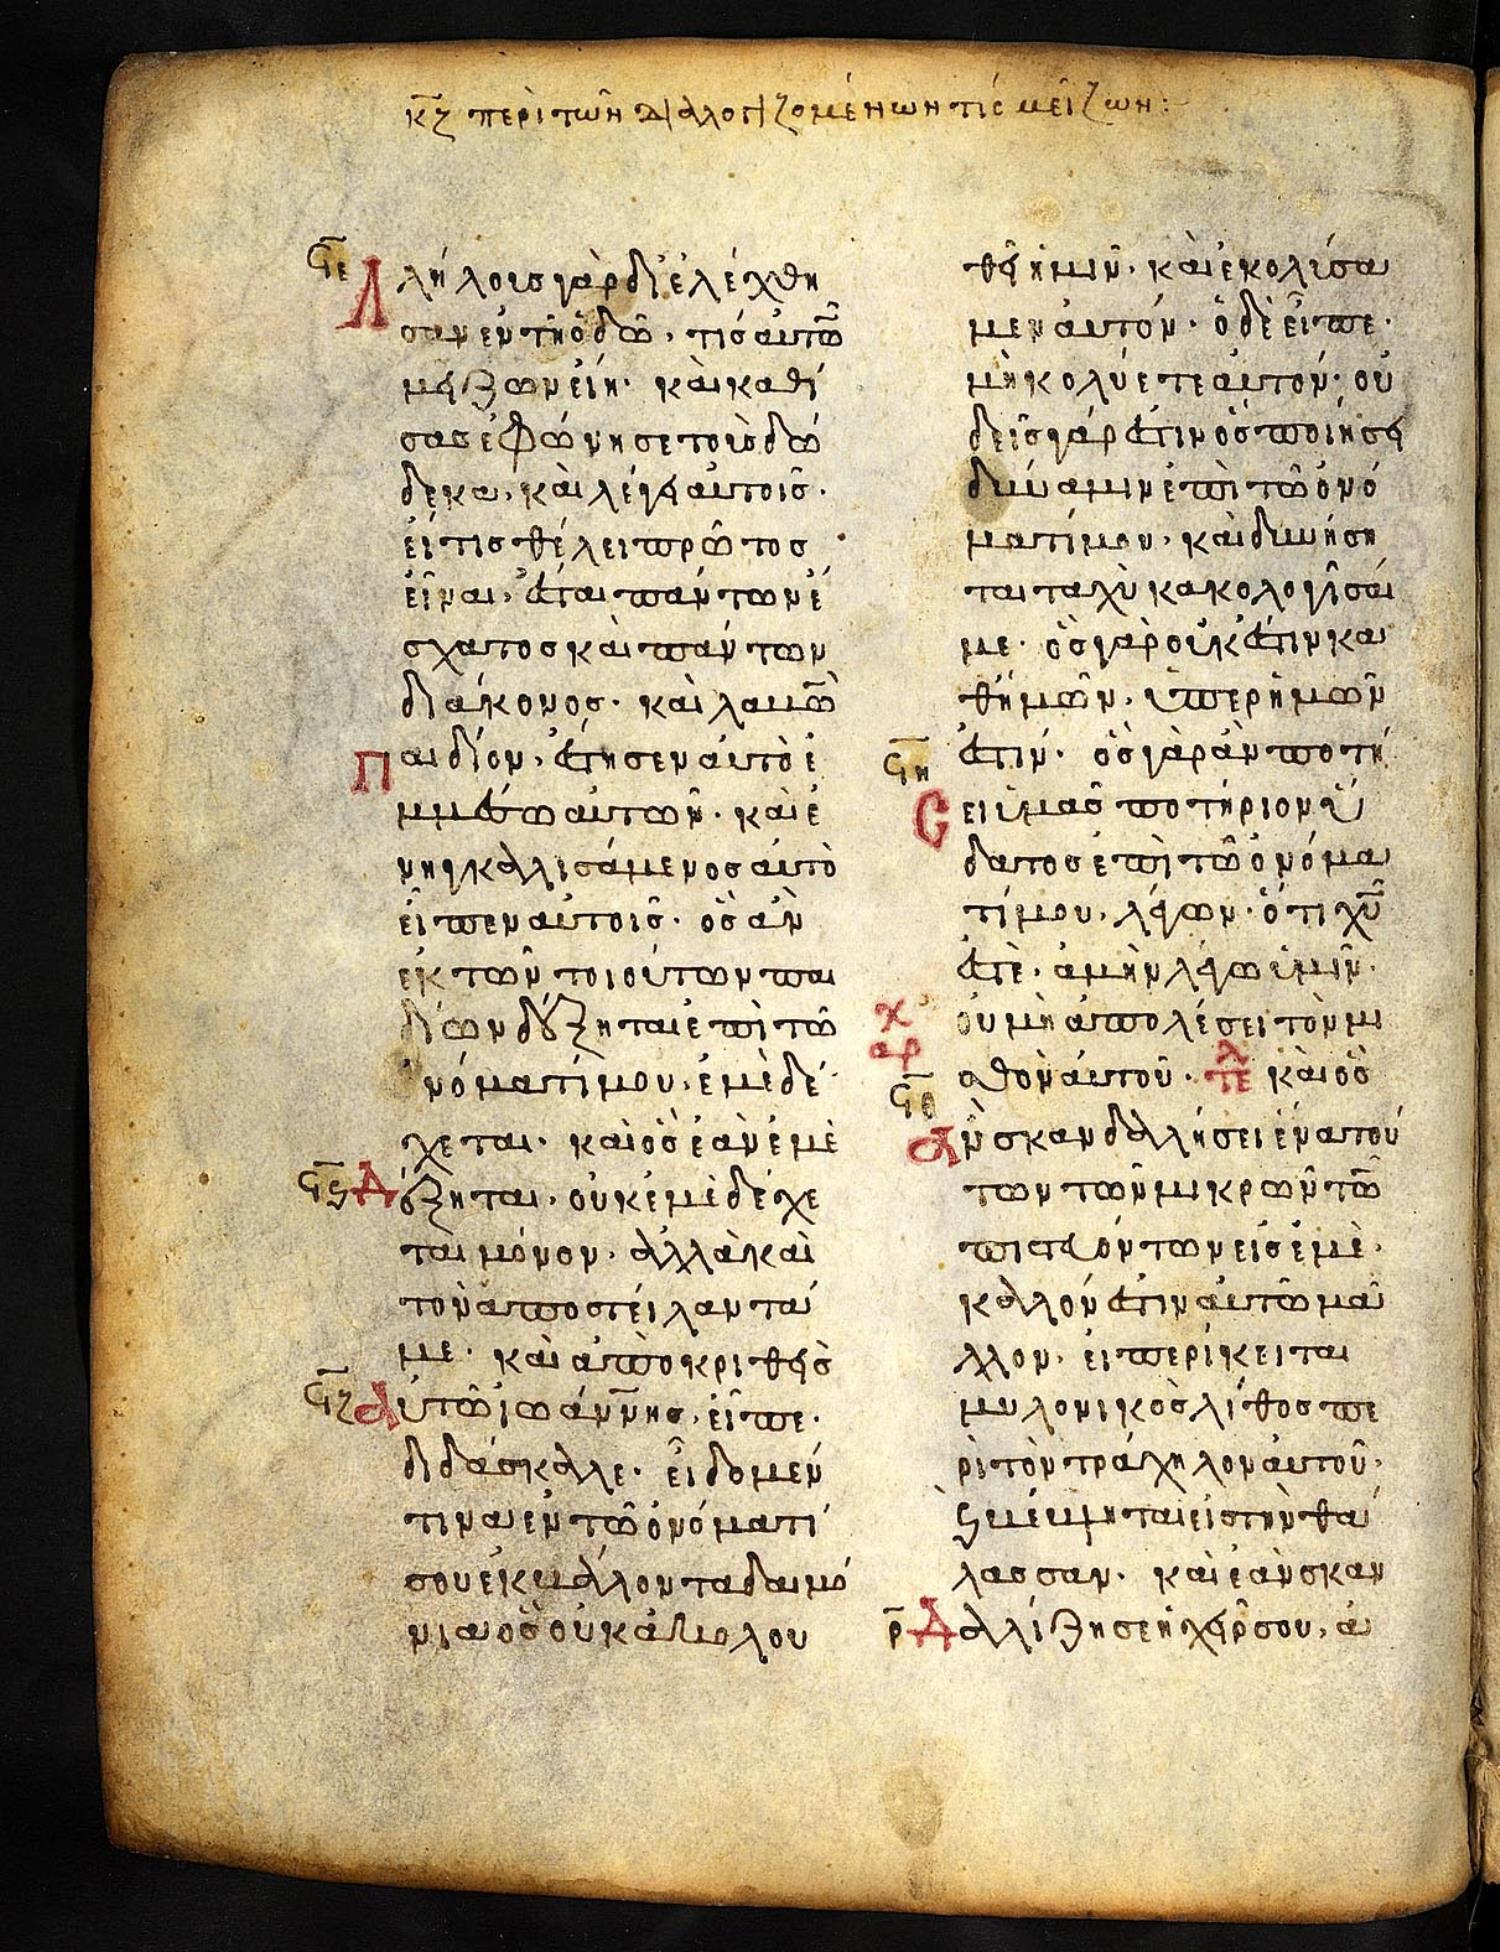 κζ περὶ τῶν διαλογιζομένων τίς μείζων:
ϟε
Λλήλοισ γὰρ διελέχθη
σαν ἐν τῆ ὁδῶ· τίσ αὐτῶ
μείζων εἴη· καὶ καθί
σας ἐφώνησε τοὺς δώ
δεκα· καὶ λέγει αὐτοῖσ·
εἴ τισ θέλει πρῶτοσ
εἶναι· ἔσται πάντων ἔ
σχατοσ καὶ πάντων
διάκονοσ· καὶ λαβὼ
Παιδίον· ἔστησεν αὐτὸ ἐ
μμέσω αὐτῶν· καὶ ἐ
νηγκαλισάμενοσ αὐτὸ
εἶπεν αὐτοῖσ· ὃσ ἂν
ἐκ τῶν τοιούτων παι
δίων δέξηται ἐπὶ τῶ
ὀνόματί μου· ἐμὲ δέ
χεται· καὶ ὃσ ἐὰν ἐμὲ
ϟϛ
Δέξηται· οὐκ ἐμὲ δέχε
ται μόνον· ἀλλὰ καὶ
τὸν ἀποστείλαντά
με· καὶ ἀποκριθεὶσ
ϟζ
Αὐτῶ ἰωάννησ· εἶπε·
διδάσκαλε· εἴδομέν
τινα ἐν τῶ ὀνόματί
σου ἐκβάλλοντα δαιμό
νια ὃσ οὐκ ἀκολου
θεῖ ἡμῖν· καὶ ἐκολύσα
μεν αὐτόν· ὁ δὲ εἶπε·
μὴ κολύετε αὐτόν· οὐ
δεὶσ γάρ ἐστιν ὃσ ποιήσει
δύναμιν ἐπὶ τῶ ὀνό
ματί μου· καὶ δυνήση
ται ταχὺ κακολογῆσαί
με· ὃσ γὰρ οὐκ ἔστιν κα
θ' ἡμῶν· ὑπερ ἡμῶν
ϟη
ἐστίν· ὃσ γὰρ ἂν ποτή
Cει ὑμᾶσ ποτήριον ὕ
δατοσ ἐπὶ τῶ ὀνόμα
τί μου· λέγων· ὅτι χυ
ἐστὲ· ἀμὴν λέγω ὑμῖν·
οὐ μὴ ἀπολέσει τὸν μι
χ
αρ
σθὸν αὐτοῦ· τελ καὶ ὃσ
ϟθ
Αν σκανδαλήσει ἕνα του
των τῶν μικρῶν τῶ
πιστευόντων εἰσ ἐμὲ·
καλλόν ἐστιν αὐτῶ μα
λλον· εἰ περίκειται
μυλονικὸσ λίθοσ πε
ρὶ τὸν τράχηλον αὐτοῦ·
ϛ βέβληται εἰσ τὴν θά
λασσαν· καὶ ἐὰν σκαν
ρ
Δαλλίζη σε ἡ χείρ σου· ἀ